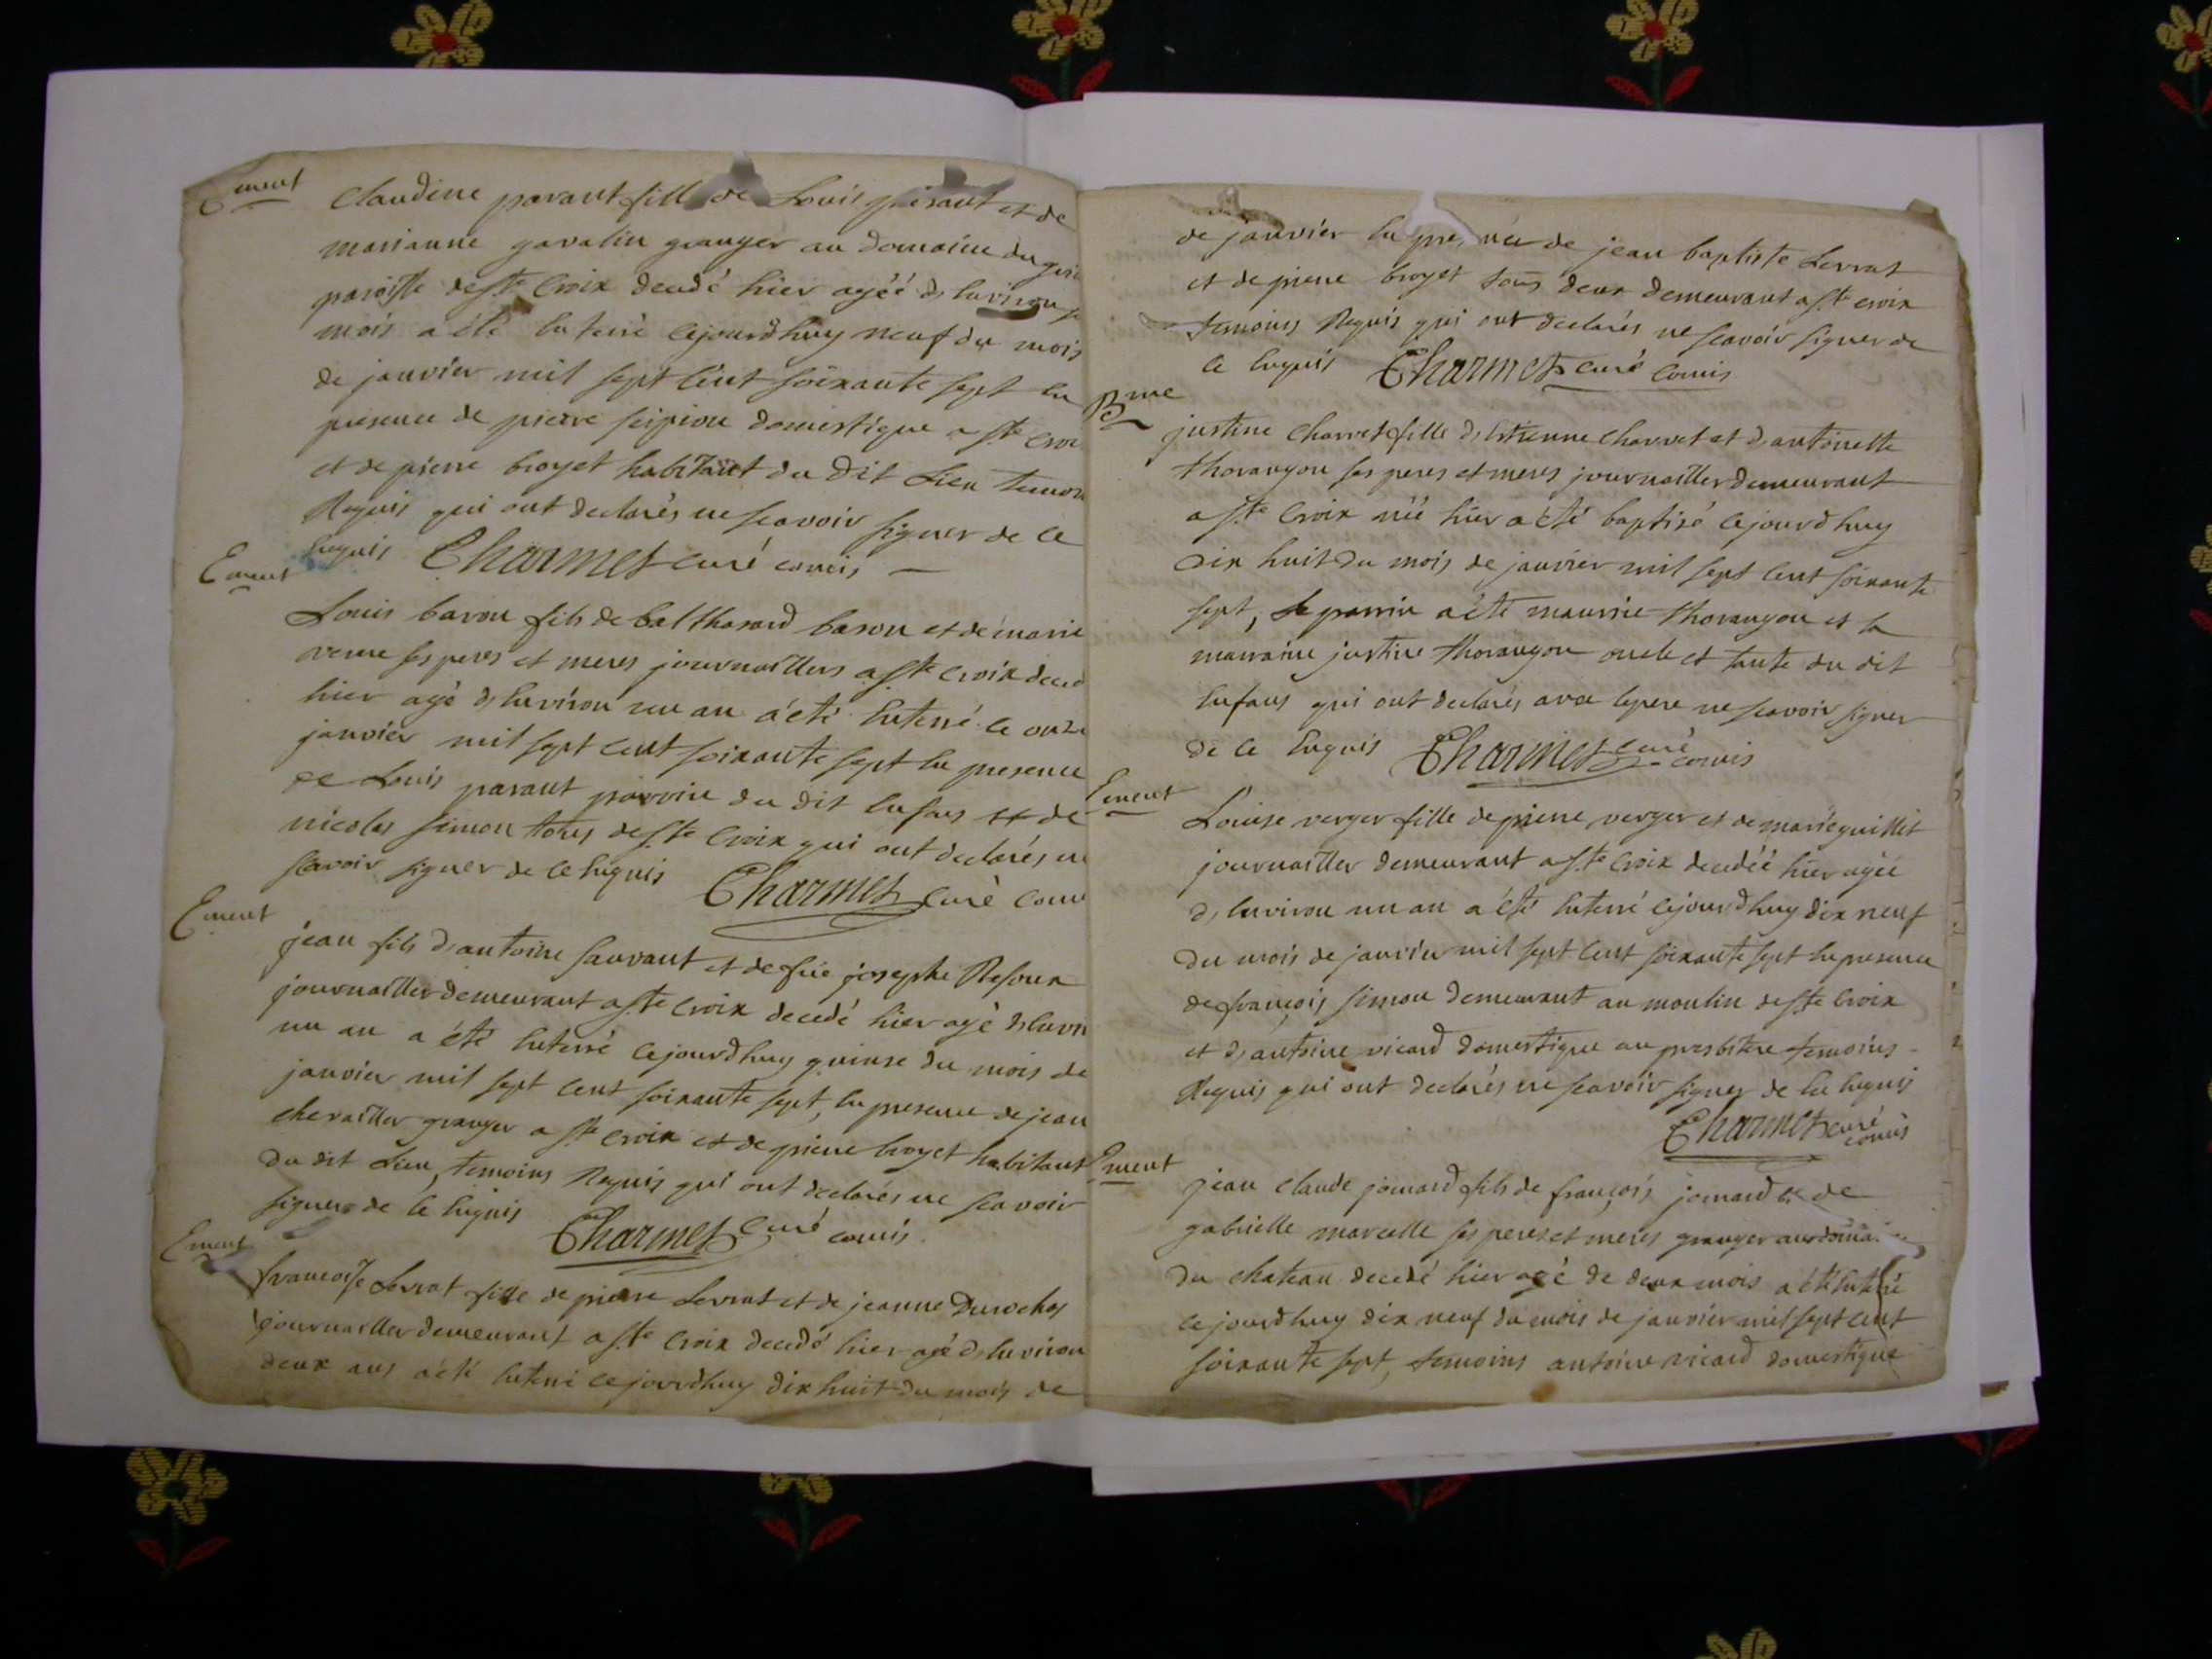 Ement
Claudine parant fille de Louis parant et de
marianne gavalin granger au domaine du
paroisse de Ste Croix decedé hier agéé d'environ
mois a été enterré cejourdhuy neuf du mois
de janvier mil sept cent soixante sept en
presence de pierre scipion domestique a Ste Croi
et de pierre broyet habitant du dit Lieu temoi
Requis qui ont declarés ne scavoir signer de ce
enquis Charmet curé comis
Ement
Louis baron fils de balthasard baron et de marie
verne ses peres et meres journaillers a Ste Croix deced
hier agé d'environ un an a été enterré le onze
janvier mil sept cent soixante sept en presence
de Louis parant parrein du dit enfans et de
nicolas simon tous de Ste Croix qui ont declarés ne
scavoir signer de ce enquis Charmet curé comi
Ement
jean fils d'antoine sauvant et de feüe josephe
journaillier demeurant a Ste Croix decedé hier agé d'envir
un an a été enterré cejourdhuy quinse du mois de
janvier mil sept cent soixante sept, en presence de jean
chevaillier granger a Ste Croix et de pierre broyet habitant
du dit Lieu, temoins Requis qui ont declarés ne scavoir
signer de ce enquis Charmet curé comis
Ement
francoise Serrat fille de pierre Serrat et de jeanne Desroches
journaillier demeurant a Ste Croix decedé hier agé d'environ
deux ans a été enterré cejourdhuy dix huit du mois de
de janvier en presence de jean baptiste Serrat
et de pierre broyet tous deux demeurant a Ste croix
temoins Requis qui ont declarés ne scavoir signer de
ce enquis Charmet curé comis
Bme
justine Charvet fille d'estienne charvet et d'antoinette
thorangon ses peres et meres journaillier demeurant
a Ste Croix néé hier a été baptisé cejourdhuy
dix huit du mois de janvier mil sept cent soixante
sept, Le parrin a été maurice thorangon et la
marraine justine thorangon oncle et tante du dit
enfans qui ont declarés avec le pere ne scavoir signer
de ce enquis Charmet curé comis
Ement
Louise verger fille de pierre verger et de marie guillet
journaillier demeurant a Ste Croix decedéé hier agée
d'environ un an a été enterré cejourdhuy dix neuf
du mois de janvier mil sept cent soixante sept en presence
de françois simon demeurant au moulin de Ste Croix
et d'antoine vicard domestique au presbitere temoins
Requis qui ont declarés ne scavoir signer de ce enquis
Charmet curé comis
Ement
jean claude jomard fils de françois jomard et de
gabrielle marcelle ses peres et meres granger au domai
du chateau decedé hier agé de deux mois a été enterré
cejourdhuy dix neuf du mois de janvier mil sept cent
soixante sept, temoins antoine vicard domestique